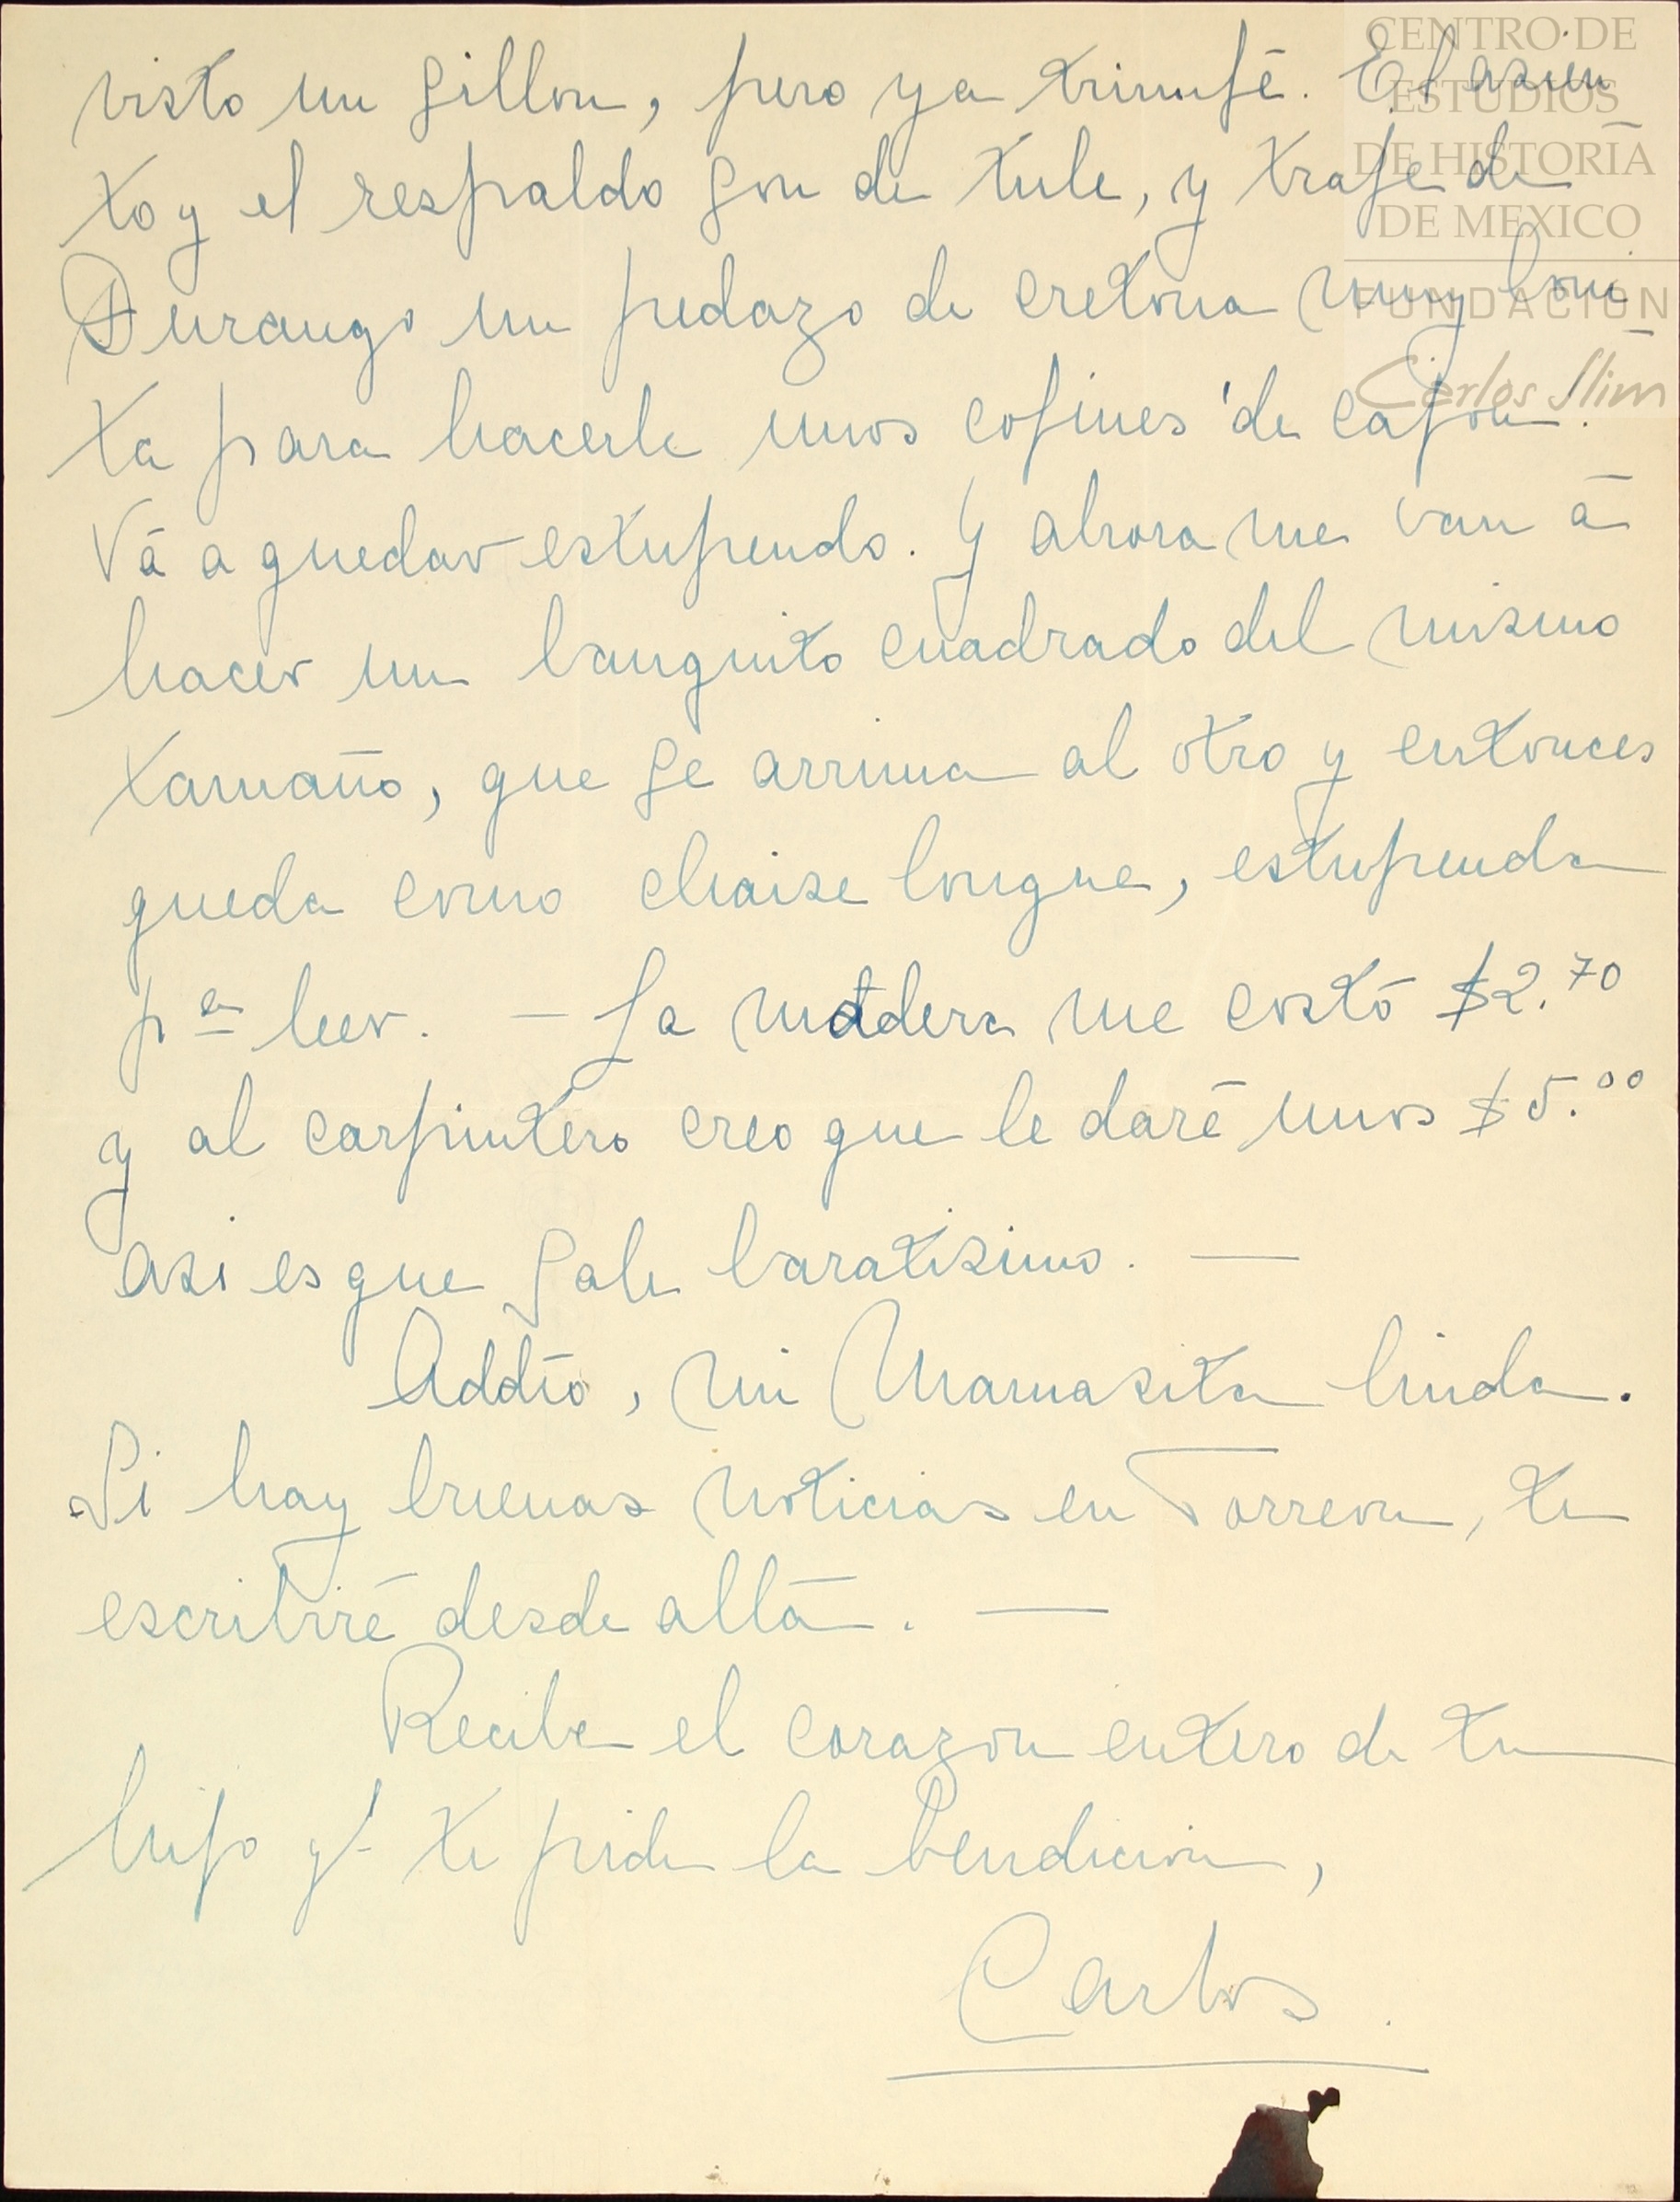 visto un sillon, pero ya triunfé. El asien
to y el respaldo son de tule, y traje de
Durango un pedazo de cretona muy boni
ta para hacerle unos cojines 'de cajon'.
Vá a quedar estupendo. Y ahora me van á
hacer un banquito cuadrado del mismo
tamaño, que se arrima al otro y entonces
queda como chaise longue, estupenda
pª leer. — La madera me costó $2.70
y al carpintero creo que le daré unos $5.00
asi es que sale baratisimo. —
Addío, mi Mamasita linda.
Si hay buenas noticias en Torreon, te
escribiré desde allá. —
Recibe el corazon entero de tu
hijo q' te pide la bendicion,
Carlos.
CENTRO DE
ESTUDIOS
DE HISTORIA
DE MEXICO
FUNDACIÓN
Carlos Slim